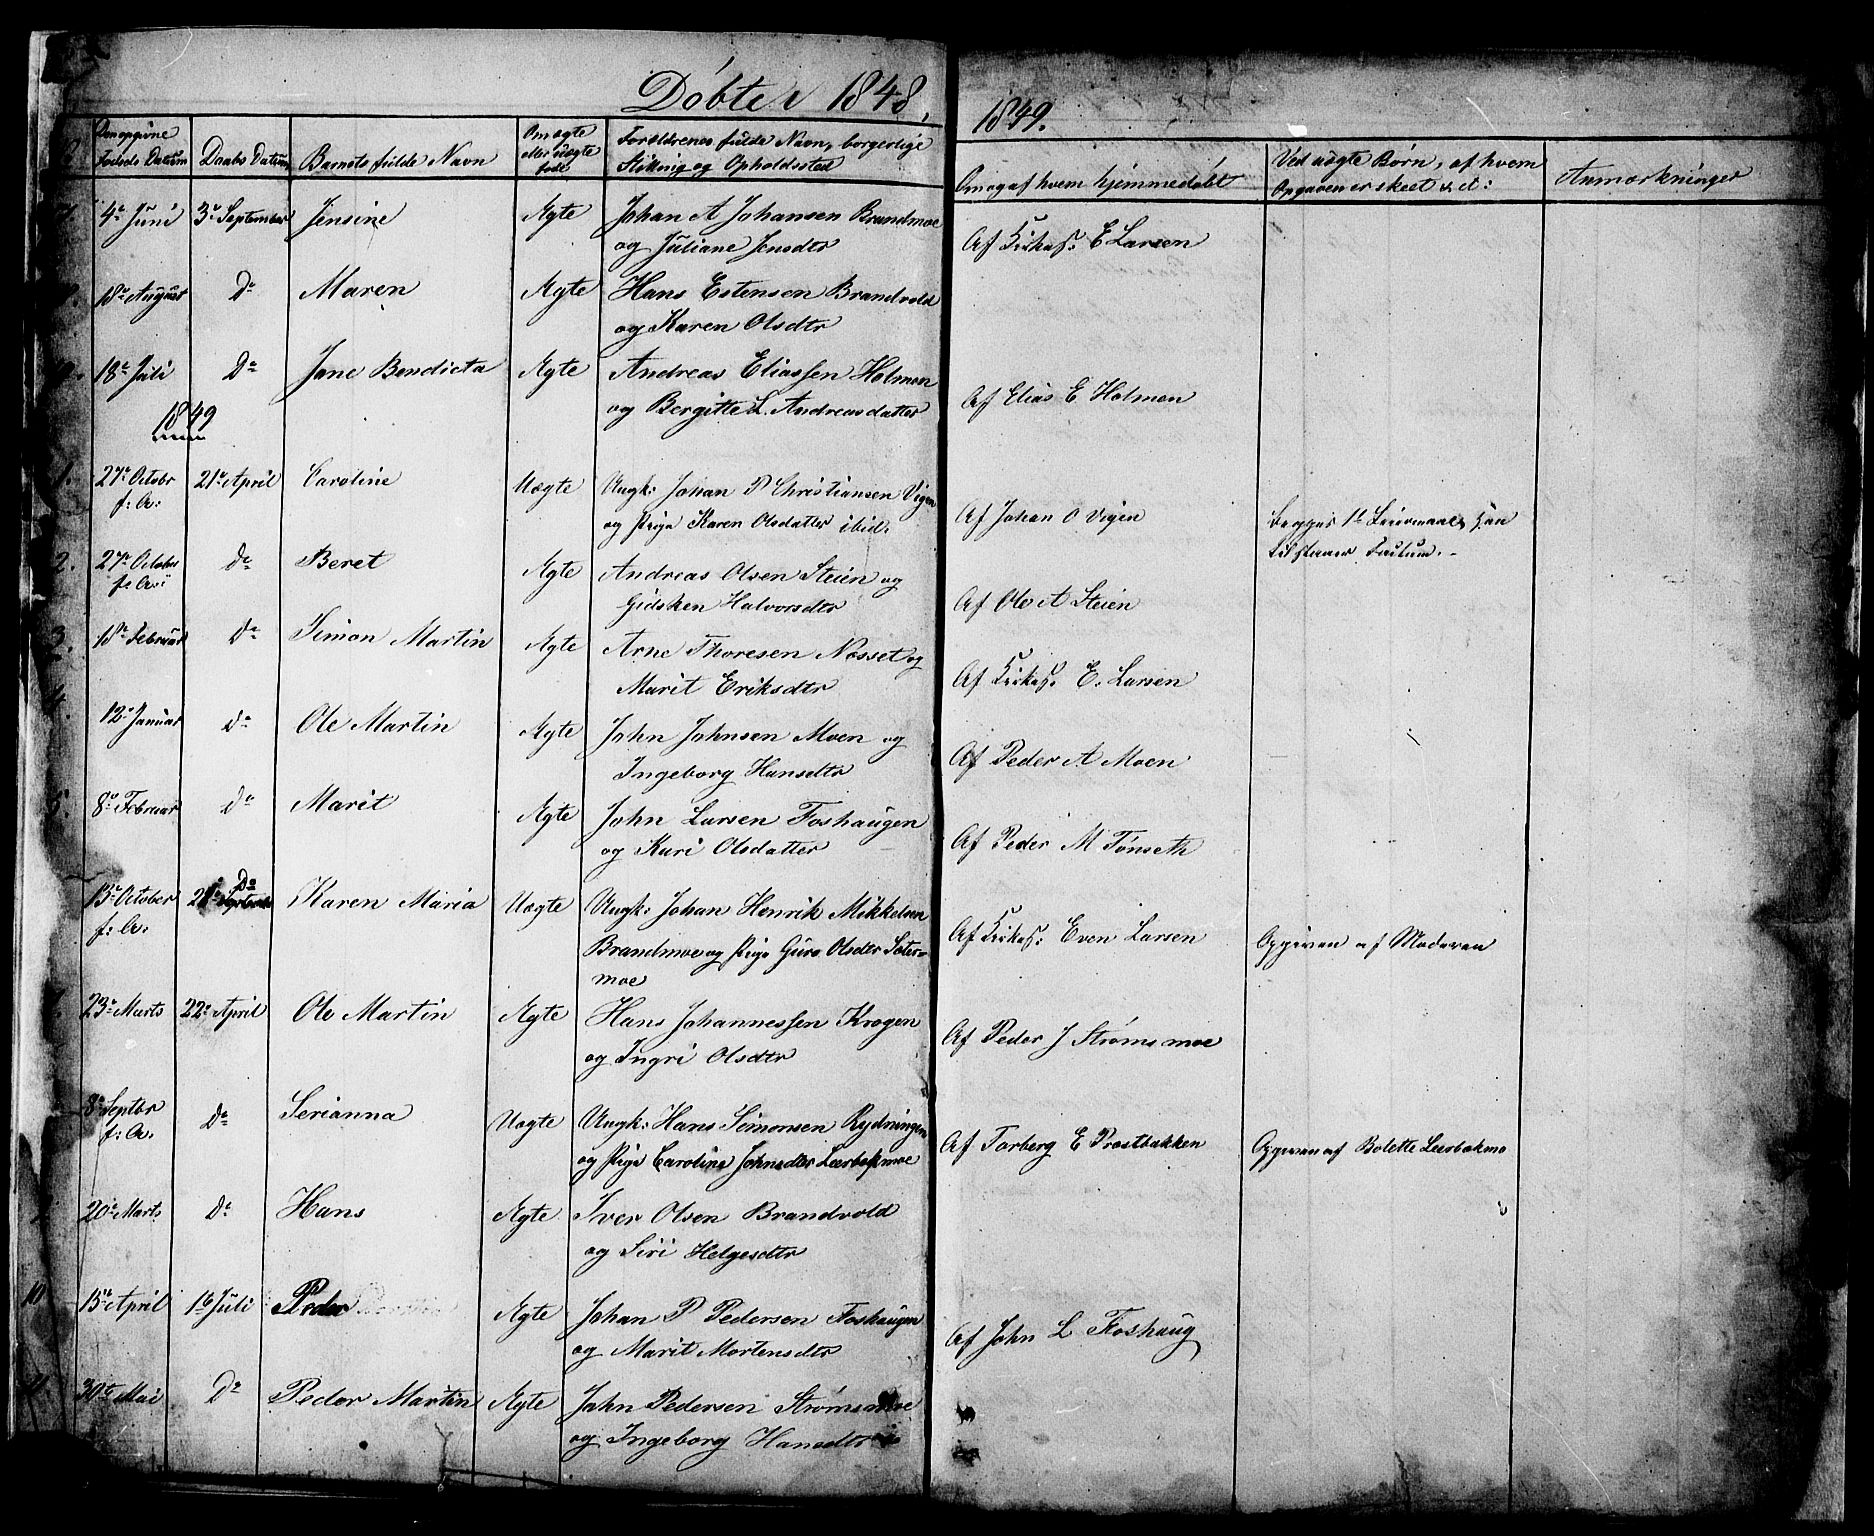 Døbte 1848, 1849.
Den opgivne Fødsels Datum | Daabs Datum | Barnets fulde Navn | Om ægte eller uægte født | Forældrenes fulde Navn, borgerlige Stilling og Opholdssted | Om og af hvem hjemmedøbt | Ved uægte Børn, af hvem Opgaven er skeet &c: | Anmærkninger
7. 4de Juni 3de September Jensine Ægte Johan A Johansen Brandmoe Af Kirkes: E Larsen
og Juliane Jensdtr
18de August Do Maren Ægte Hans Estensen Brandvold
og Karen Olsdtr
18de Juli Do Jane Bendicta Ægte Andreas Eliassen Holmen Af Elias E Holmen
og Bergitte L. Andreasdatter
1849
1. 27de Octobr 21de April Caroline Uægte Ungk: Johan P Christiansen Vigen Af Johan O Vigen Begges 1ste Leiermaal, han
f: A: og Pige Karen Olsdatter ibid. tilstaaer Factum. -
2. 27de October do Beret Ægte Andreas Olsen Steien og Af Ole A Steien
f: A: Gidsken Halvorsdtr
3. 18de Februar Do Simon Martin Ægte Arne Thoresen Nesset og Af Kirkes: E. Larsen
Marit Eriksdtr
4. 12te Januar do Ole Martin Ægte John Johnsen Moen og Af Peder A Moen
Ingeborg Hansdtr
5. 8de Februar do Marit Ægte John Larsen Foshaugen Af Peder M Tønseth
og Kari Olsdatter
13de October Do Karen Maria Uægte Ungk: Johan Henrik Mikkelsen Af Kirkes: Even Larsen Opgiven af Moderen
f: A: Brandmoe og Pige Guro Olsdtr Sæter-
moe
23de Marts 22de April Ole Martin Ægte Hans Johannessen Krogen Af Peder J Strømsmoe
og Ingri Olsdtr
8de Septbr Do Serianna Uægte Ungk: Hans Simonsen Rydningen Af Torberg E Prostbakken Opgiven af Bolette Leerbakmo
f: A: og Pige Caroline Johnsdtr Leerbakmoe
20de Marts Do Hans Ægte Iver Olsen Brandvold
og Siri Helgesdtr
10 15de April 16 Juli Peder Ægte Johan P Pedersen Foshaugen Af John L Foshaug
og Marit Mortensdtr
11 30te Mai Do Peder Martin Ægte John Pedersen Strømsmoe
og Ingeborg Hansdtr